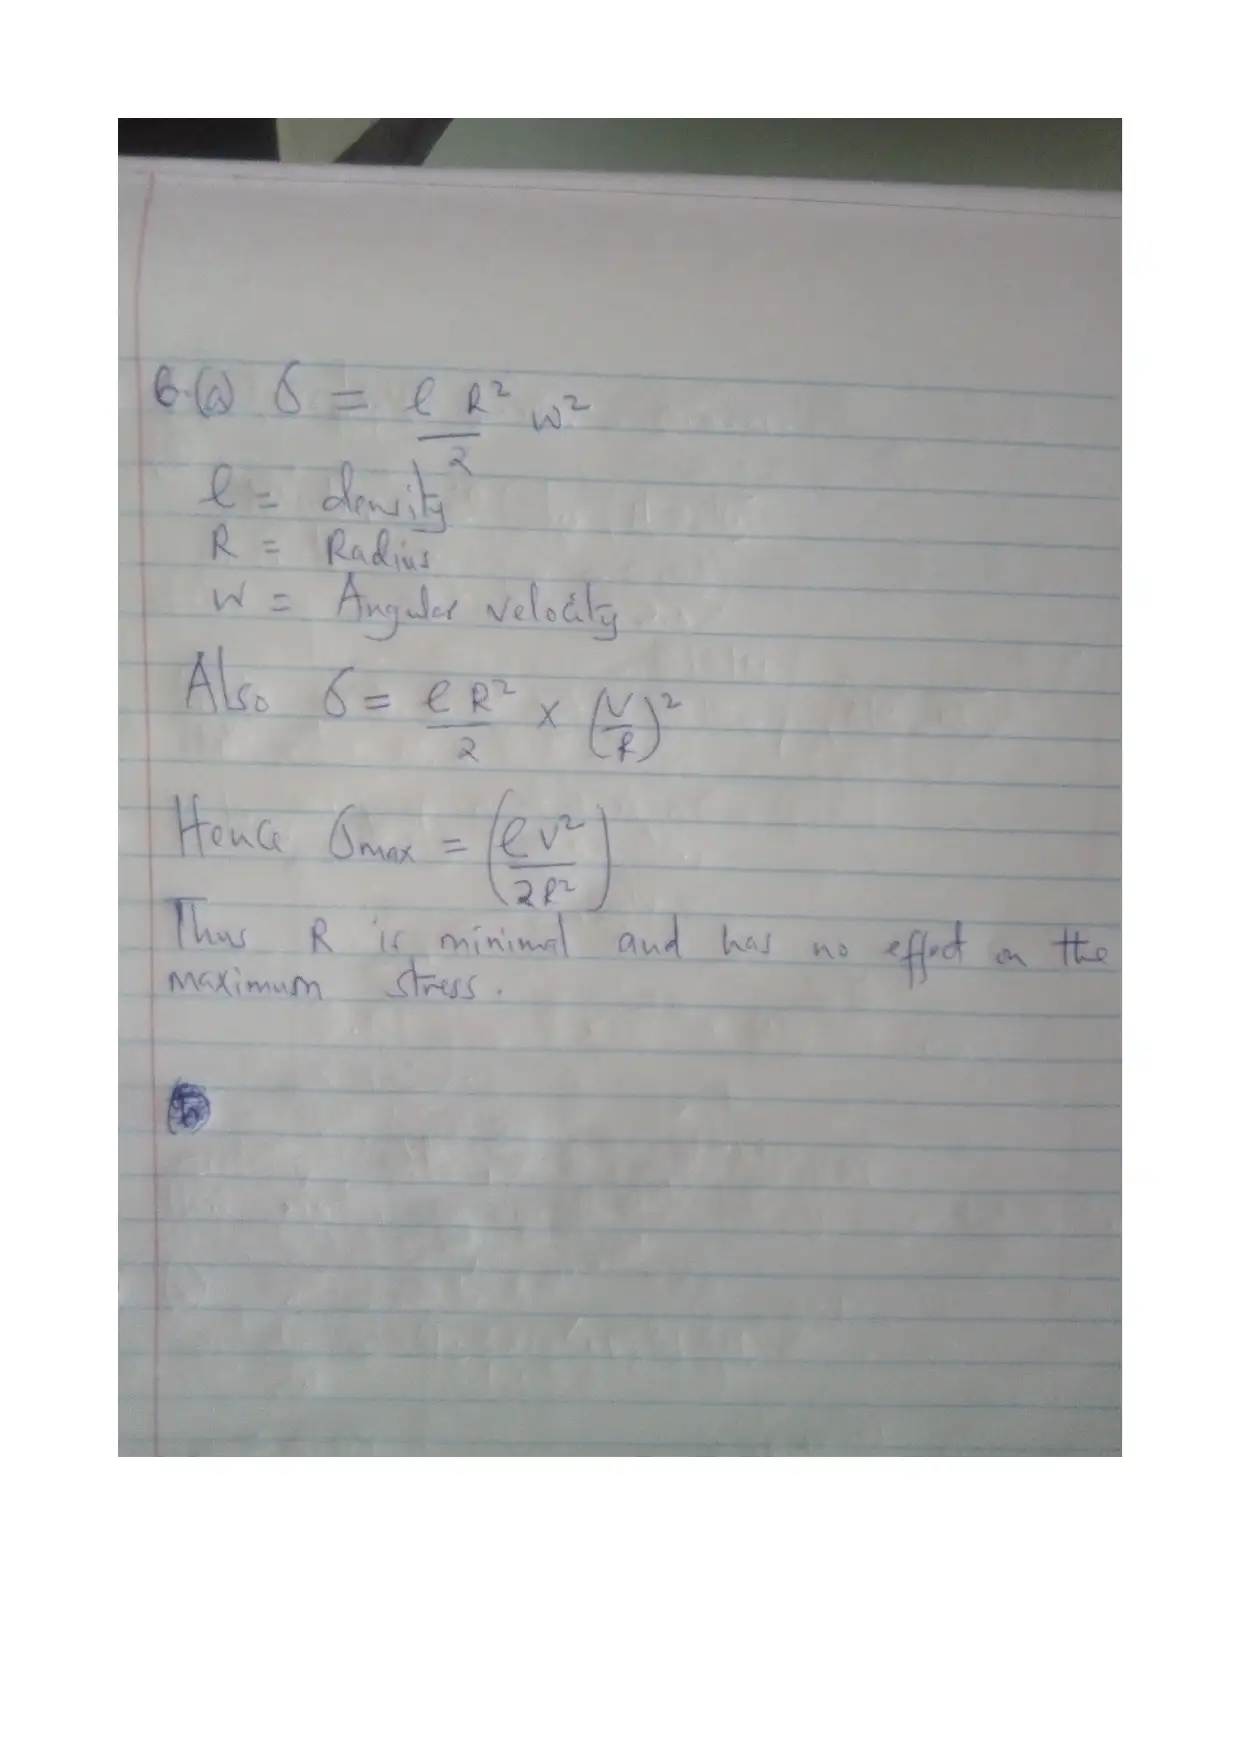 6.(a) σ = ρ R² / 2 w²
ρ = density
R = Radius
W = Angular velocity
Also σ = ρ R² / 2 × (V/R)²
Hence σmax = (ρ v² / 2R²)
Thus R is minimal and has no effect on the
maximum stress.